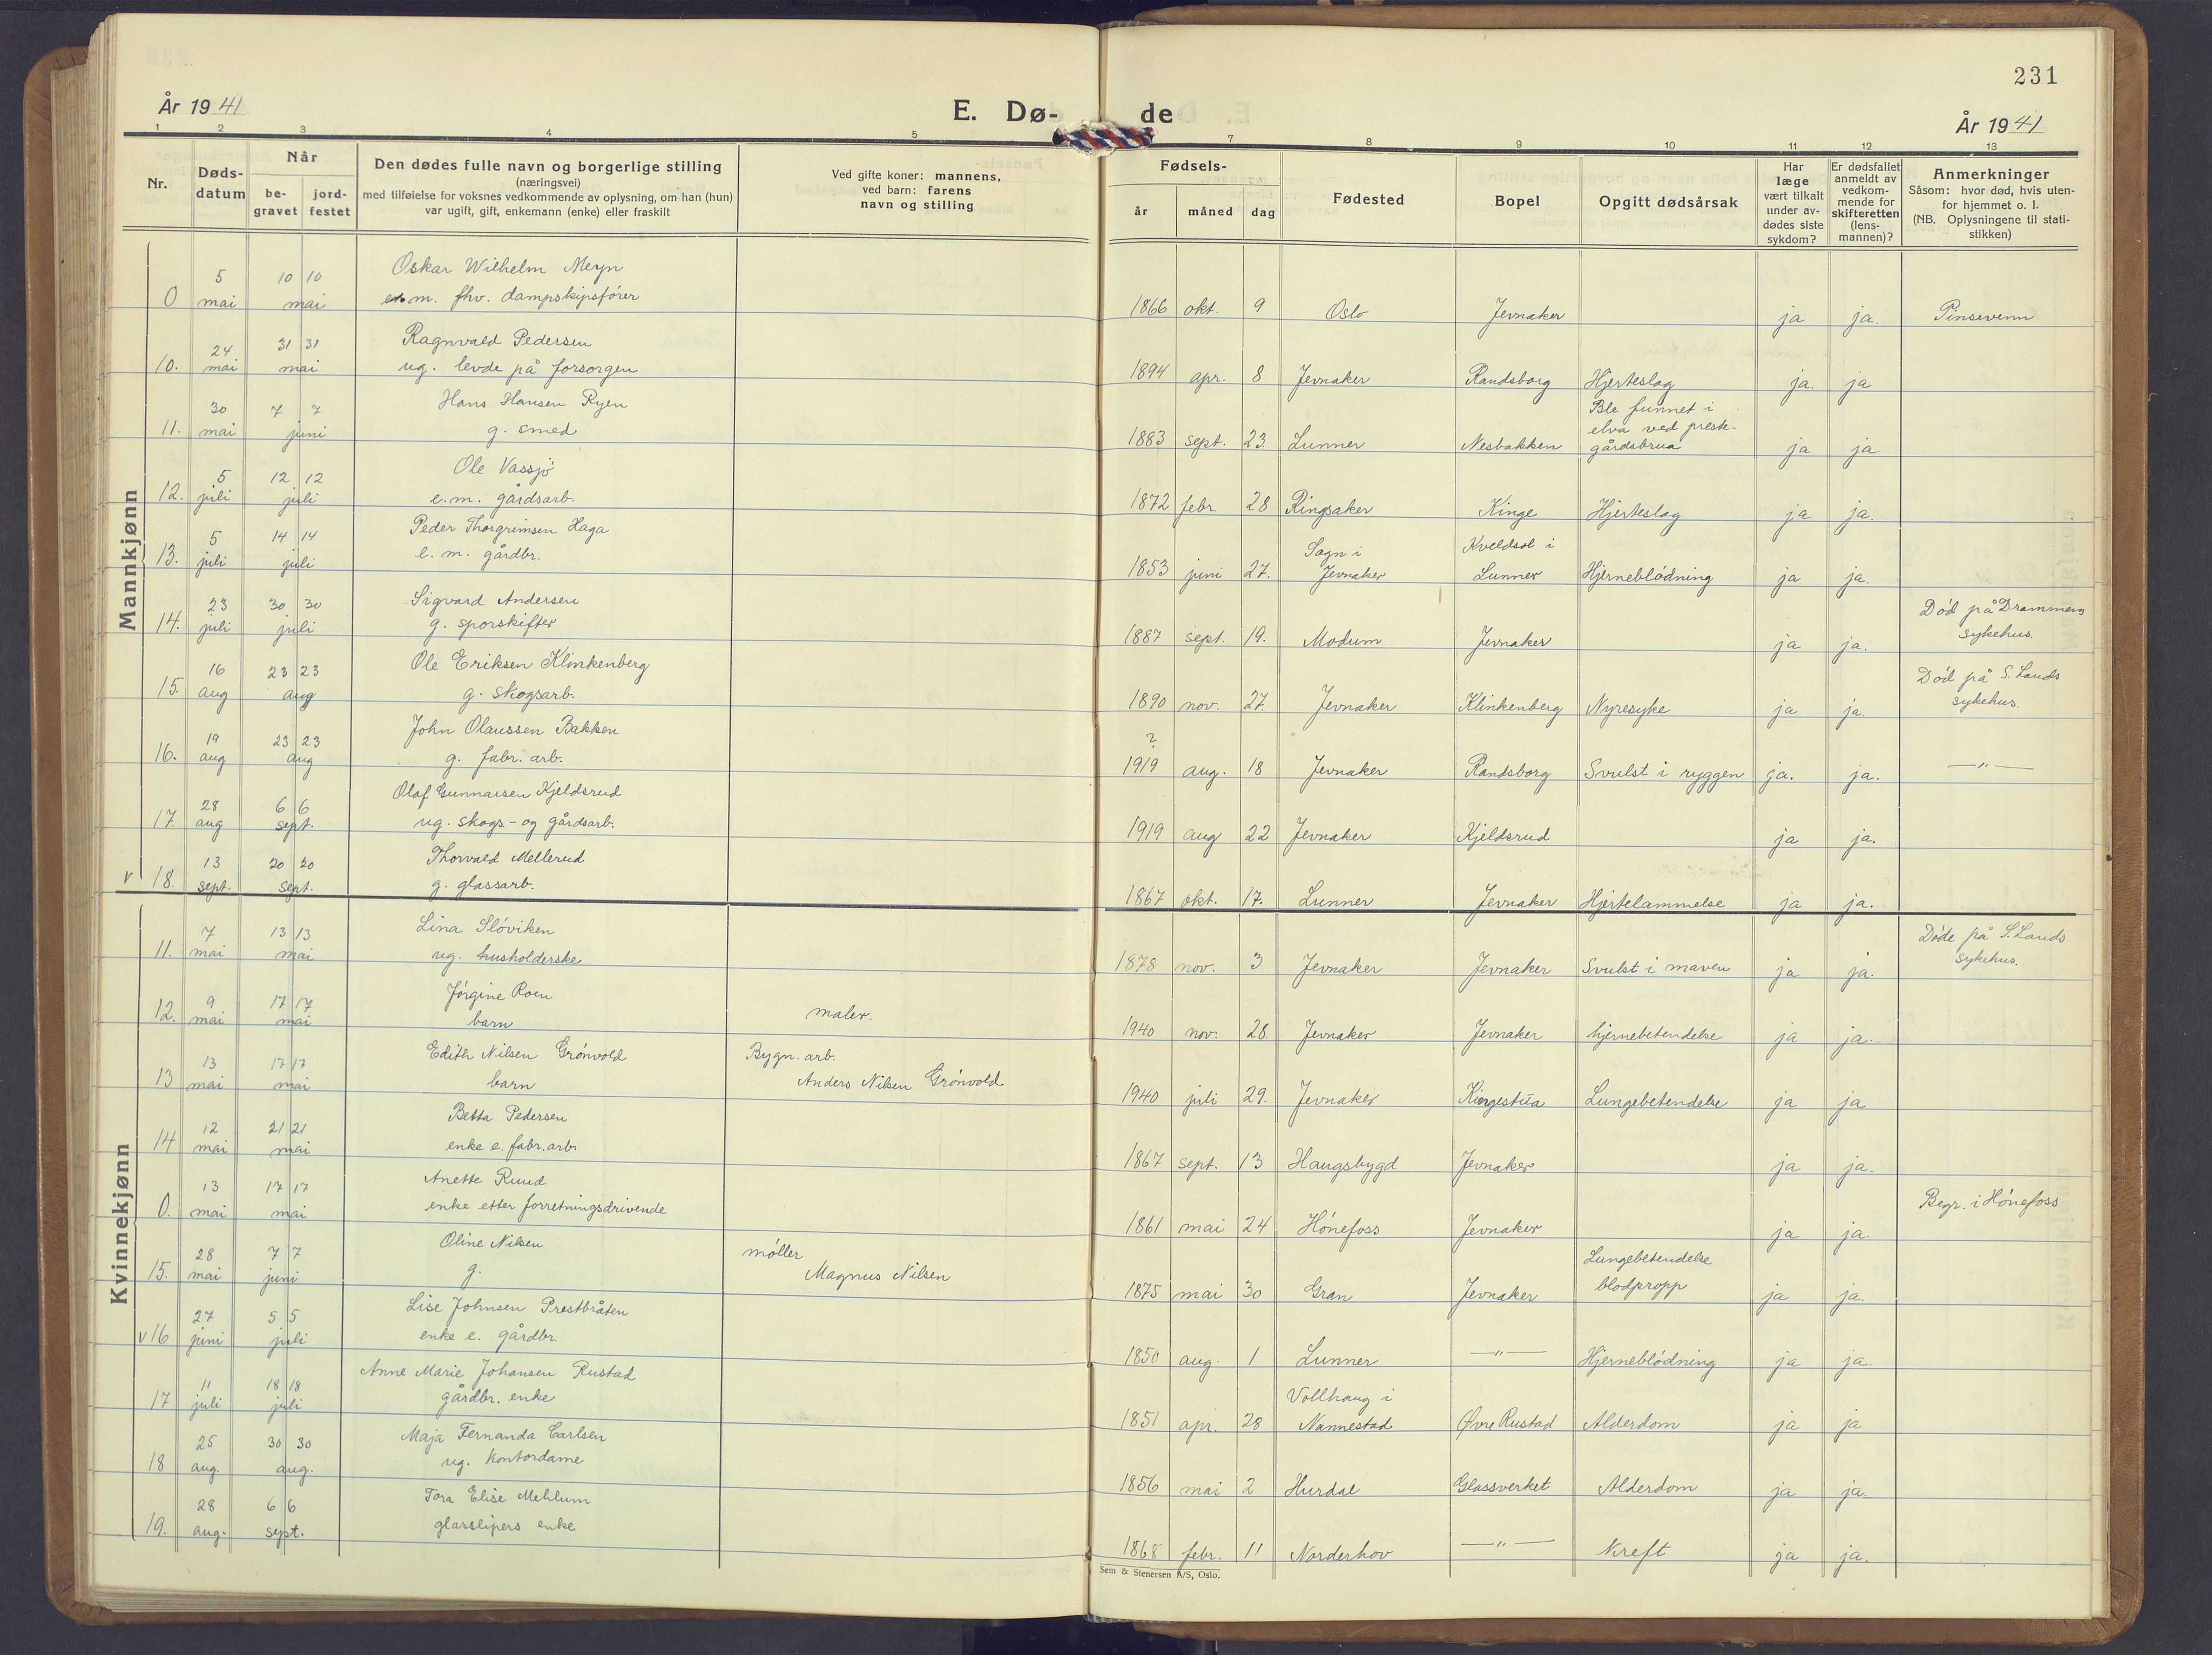 231
År 1941
E. Dø-
de
År 1941
1 2 3 4 5 7 8 9 10 11 12 13
Nr.
Døds-
datum
Når
be-
gravet
jord-
festet
Den dødes fulle navn og borgerlige stilling
(næringsvei)
med tilføielse for voksnes vedkommende av oplysning, om han (hun)
var ugift, gift, enkemann (enke) eller fraskilt
Ved gifte koner: mannens,
ved barn: farens
navn og stilling
Fødsels-
år måned dag
Fødested
Bopel
Opgitt dødsårsak
Har
læge
vært tilkalt
under av-
dødes siste
sykdom?
Er dødsfallet
anmeldt av
vedkom-
mende for
skifteretten
(lens-
mannen)?
Anmerkninger
Såsom: hvor død, hvis uten-
for hjemmet o. l.
(NB. Oplysningene til stati-
stikken)
Mannkjønn
5 10 10 Oskar Wilhelm Meyn
0 mai mai em. fhv. dampskipsfører 1866 okt. 9 Oslo Jevnaker ja ja. Pinsevenn
24 31 31 Ragnvald Pedersen
10. mai mai ug. levde på forsorgen 1894 apr. 8 Jevnaker Randsborg Hjerteslag ja. ja
30 7 7 Hans Hansen Ryen Ble funnet i
elva ved preste-
11. mai juni g. smed 1883 sept. 23 Lunner Nesbakken gårdsbrua ja ja.
5 12 12 Ole Vassjø
12. juli juli e.m. gårdsarb. 1872 febr. 28 Ringsaker Kinge Hjerteslag ja ja.
5 14 14 Peder Thorgrimsen Haga Sogn i Kveldsol i
13. juli juli e.m. gårdbr. 1853 juni 27. Jevnaker Lunner Hjerneblødning ja ja.
23 30 30 Sigvard Andersen Død på Drammens
14. juli juli g. sporskifter 1887 sept. 19. Modum Jevnaker ja ja. sykehus.
16 23 23 Ole Eriksen Klinkenberg Død på S. Lands
15. aug aug g. skogsarb. 1890 nov. 27. Jevnaker Klinkenberg Nyresyke ja ja. sykehus.
19 23 23 John Olaussen Bakken ?
16. aug aug g. fabr. arb. 1919 aug. 18 Jevnaker Randsborg Svulst i ryggen ja. ja. —"—
28 6 6 Olaf Gunnarsen Kjeldsrud
17. aug sept. ug. skogs- og gårdsarb. 1919 aug 22 Jevnaker Kjeldsrud ja ja.
13 20 20 Thorvald Mellerud
v 18. sept. sept. g. glassarb. 1867 okt. 17. Lunner Jevnaker Hjertelammelse ja ja.
Kvinnekjønn
7 13 13 Lina Sløviken Døde på S. Lands
11. mai mai ug. husholderske 1878 nov. 3 Jevnaker Jevnaker Svulst i maven ja ja. sykehus.
9 17 17 Jørgine Roen maler.
12. mai mai barn 1940 nov. 28 Jevnaker Jevnaker hjernebetendelse ja ja.
13 17 17 Edith Nilsen Grønvold Bygn. arb.
13 mai mai barn Anders Nilsen Grønvold 1940 juli 29. Jevnaker Kingestua Lungebetendelse ja ja
12 21 21 Betta Pedersen
14 mai mai enke e. fabr. arb. 1867 sept. 13 Haugsbygd Jevnaker ja ja.
13 17 17 Anette Ruud Begr. i Hønefoss
0. mai mai enke etter forretningsdrivende 1861 mai 24 Hønefoss Jevnaker ja ja.
28 7 7 Oline Nilsen møller Lungebetendelse
15. mai juni g. Magnus Nilsen 1875 mai 30 Gran Jevnaker blodpropp ja ja.
27 5 5 Lise Johnsen Prestbråten
v 16 juni juli enke e. gårdbr. 1850 aug. 1 Lunner —"— Hjerneblødning ja ja.
11 18 18 Anne Marie Johansen Rustad Vollhaug i
17 juli juli gårdbr. enke 1851 apr. 28 Nannestad Øvre Rustad Alderdom ja ja
25 30 30 Maja Fernanda Carlsen
18 aug. aug. ug. kontordame 1856 mai 2 Hurdal Glassverket Alderdom ja ja.
28 6 6 Tora Elise Mehlum
19. aug. sept. glasslipers enke 1868 febr. 11 Norderhov —"— Kreft ja ja.
Sem & Stenersen A/S, Oslo.